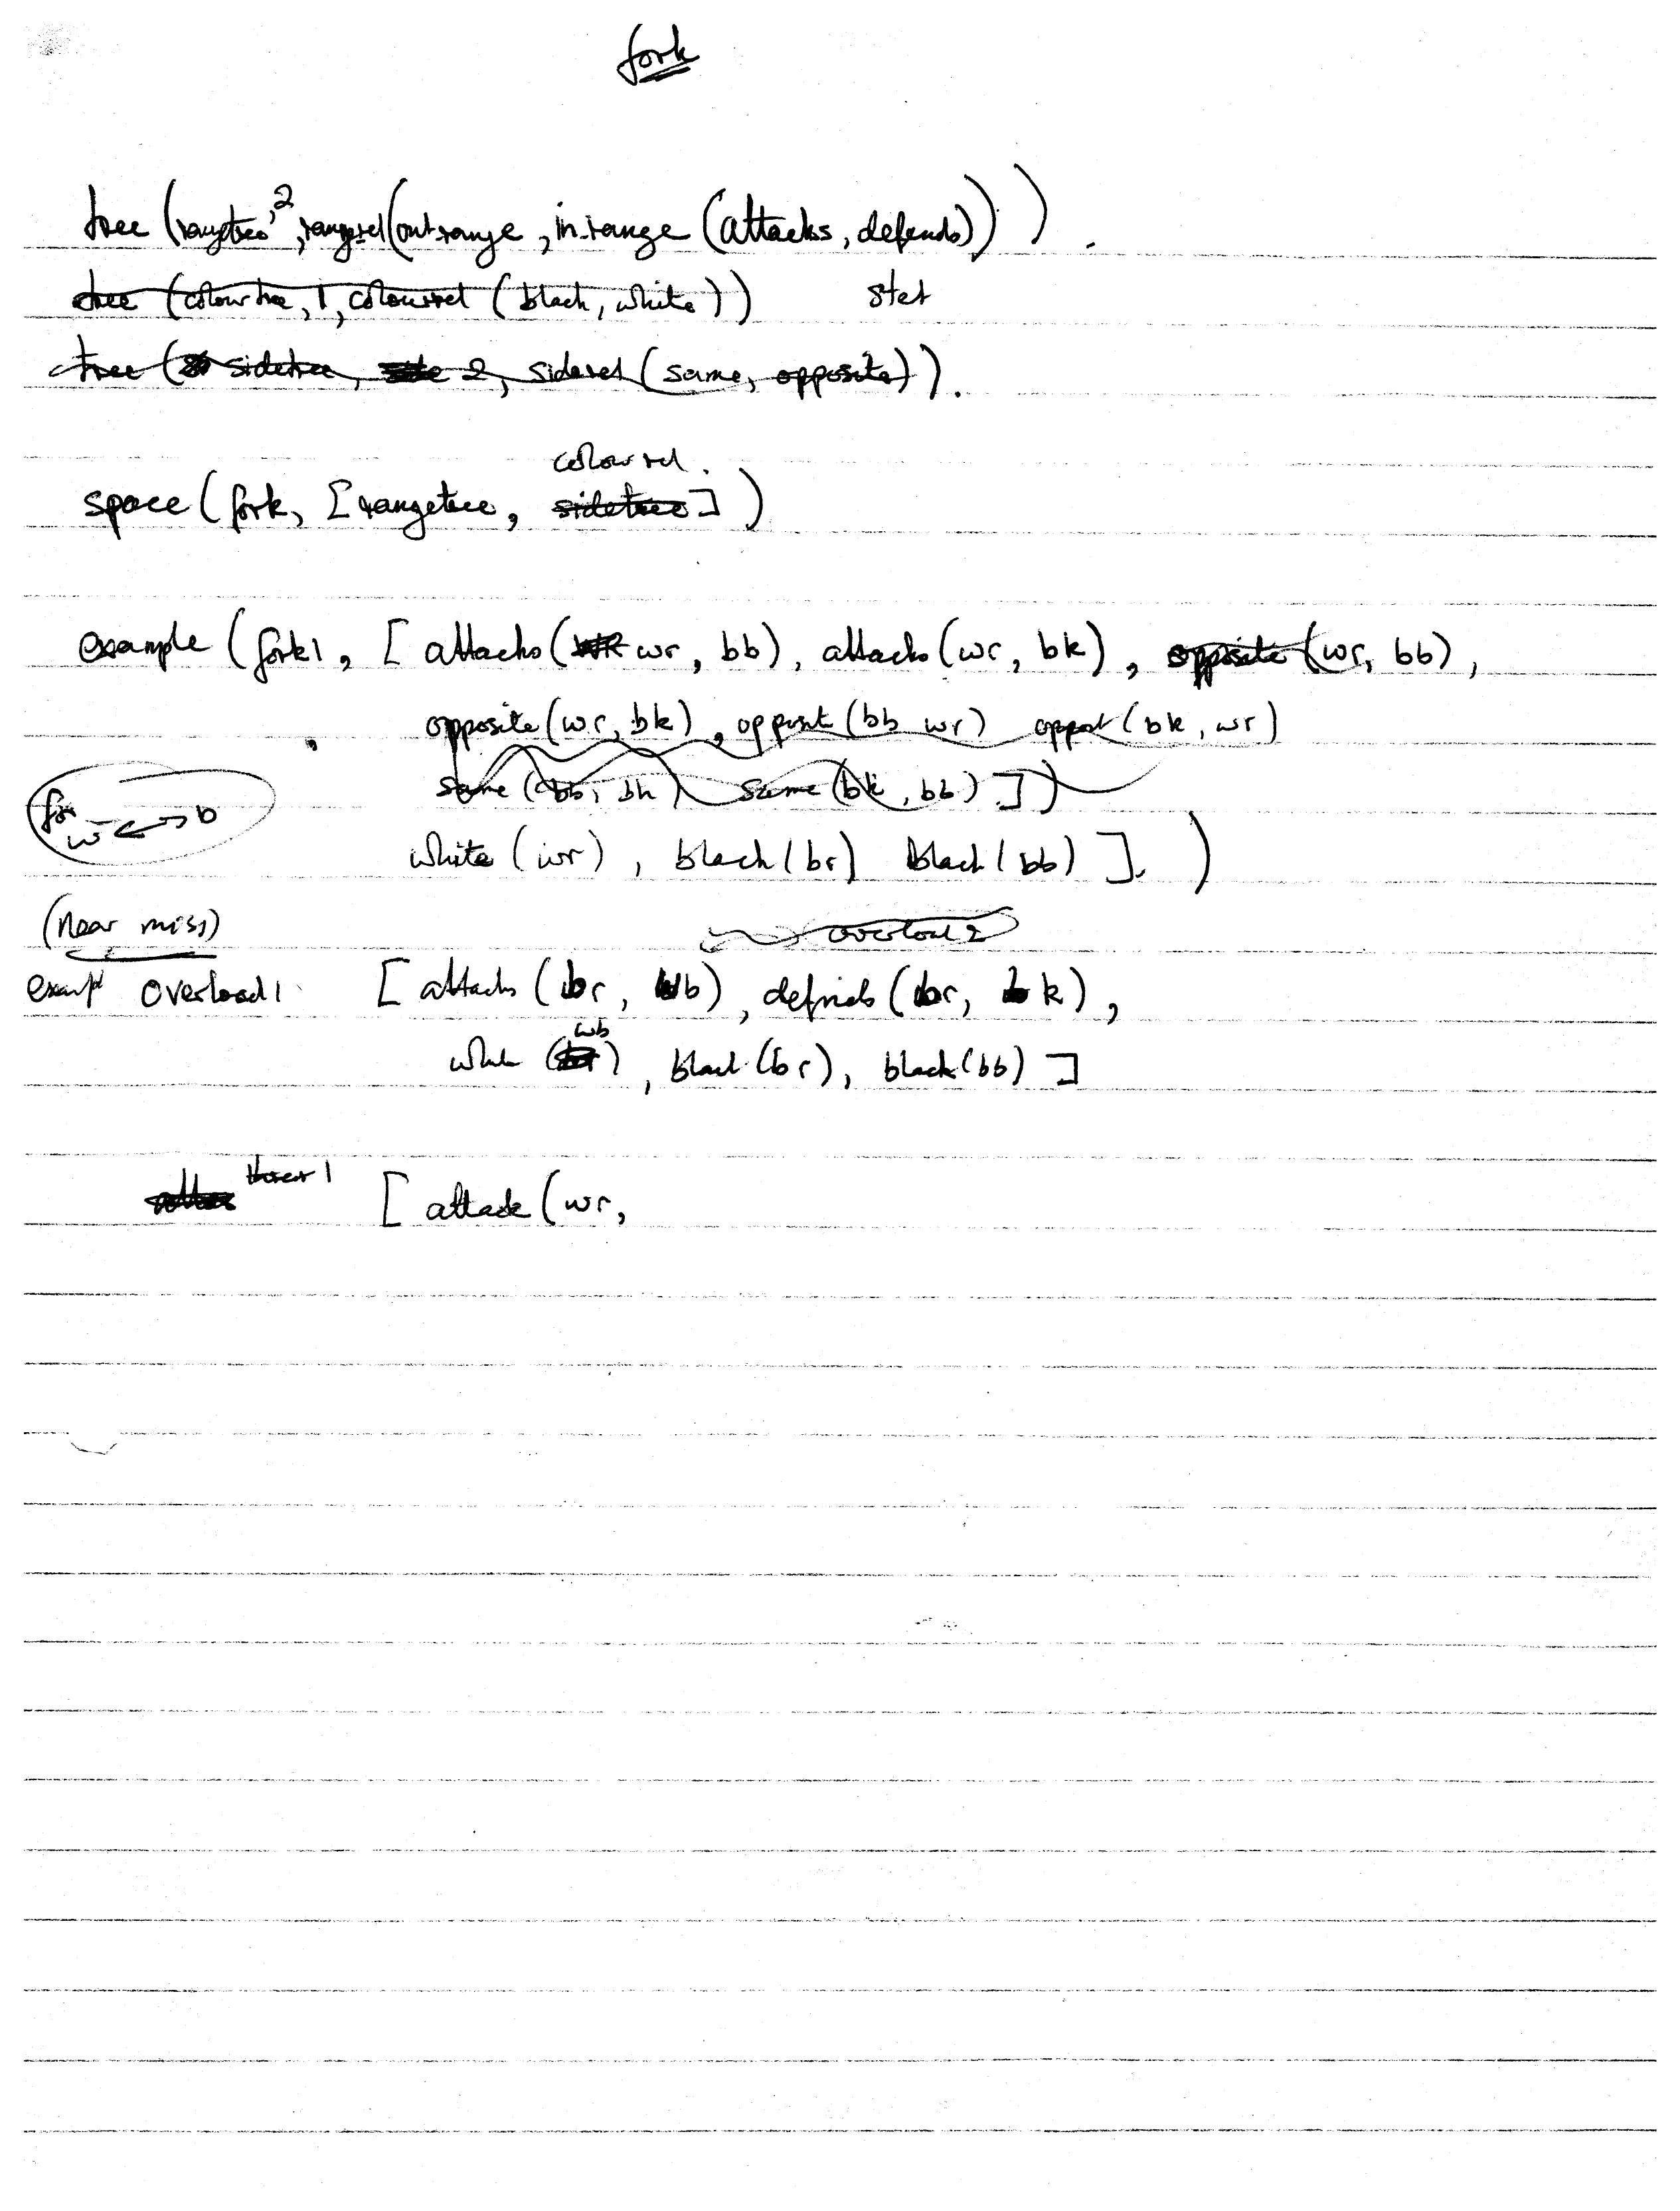 fork
tree (rangetree, 2, rangerel (out_range, in_range (attacks, defends))).
tree (colourtree, 1, colourrel (black, white)) stet
tree (sidetree, 2, siderel (same, opposite)).
colourrel.
space (fork, [rangetree, sidetree])
example (fork1, [attacks (wr, bb), attacks (wr, bk), opposite (wr, bb),
opposite (wr, bk), opposit (bb wr) oppost (bk, wr)
same (bb, bk) same (bk, bb)])
for
w ↔ b
white (wr), black (br) black (bb)].)
(Near miss)
overload 2
examp overload1 [attacks (br, wb), defends (br, bk),
wb
white ( ), black (br), black (bb)]
threat 1
[attack (wr,